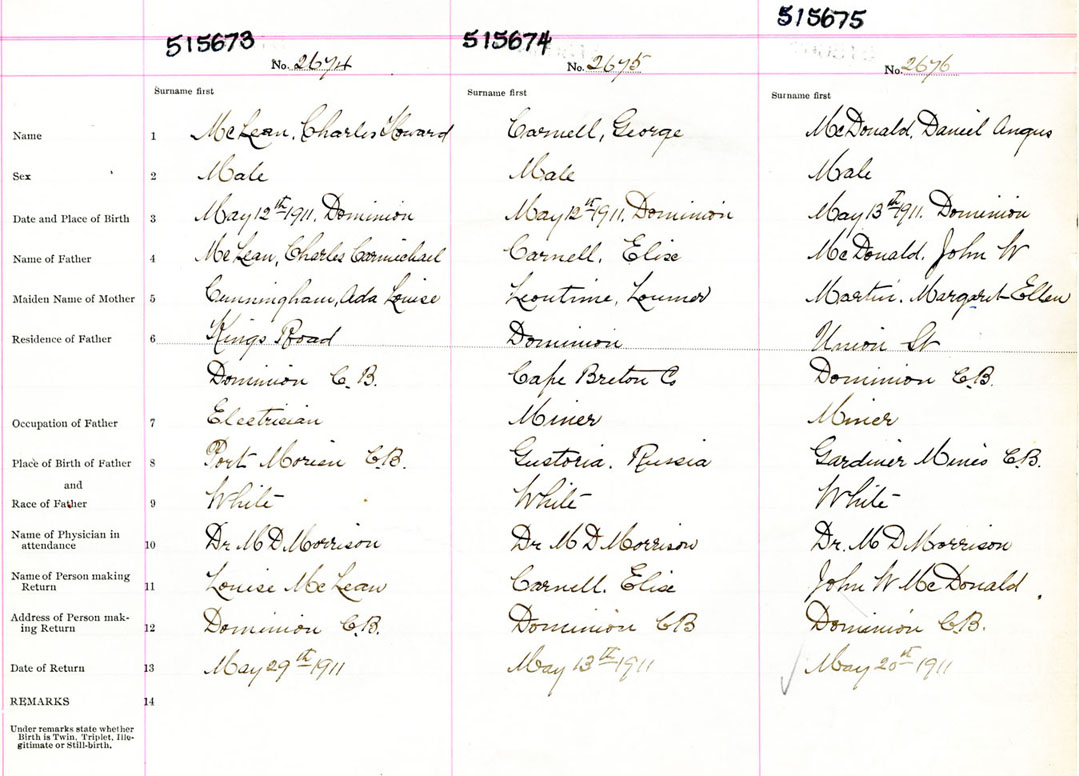 515673 515674 515675
No. 2674 No. 2675 No. 2676
Surname first Surname first Surname first
Name 1 McLean, Charles Howard Carnell, George McDonald, Daniel Angus
Sex 2 Male Male Male
Date and Place of Birth 3 May 12th 1911, Dominion May 12st 1911, Dominion May 13th 1911. Dominion
Name of Father 4 McLean, Charles Carmichael Carnell, Elise McDonald, John W
Maiden Name of Mother 5 Cunningham, Ada Louise Leontine, Loumer Martin, Margaret Ellen
Residence of Father 6 Kings Road Dominion Union St
Dominion C.B. Cape Breton Co Dominion C.B.
Occupation of Father 7 Electrician Miner Miner
Place of Birth of Father 8 Port Morien C.B. Gustoria, Russia Gardiner Mines C.B.
and
Race of Father 9 White White White
Name of Physician in
attendance 10 Dr. M D Morrison Dr M D Morrison Dr. M D Morrison
Name of Person making
Return 11 Louise McLean Carnell, Elise John W McDonald
Address of Person mak-
ing Return 12 Dominion C.B. Dominion CB Dominion C.B.
Date of Return 13 May 29th 1911 May 13th 1911 May 20st 1911
REMARKS 14
Under remarks state whether
Birth is Twin, Triplet, Ille-
gitimate or Still-birth.